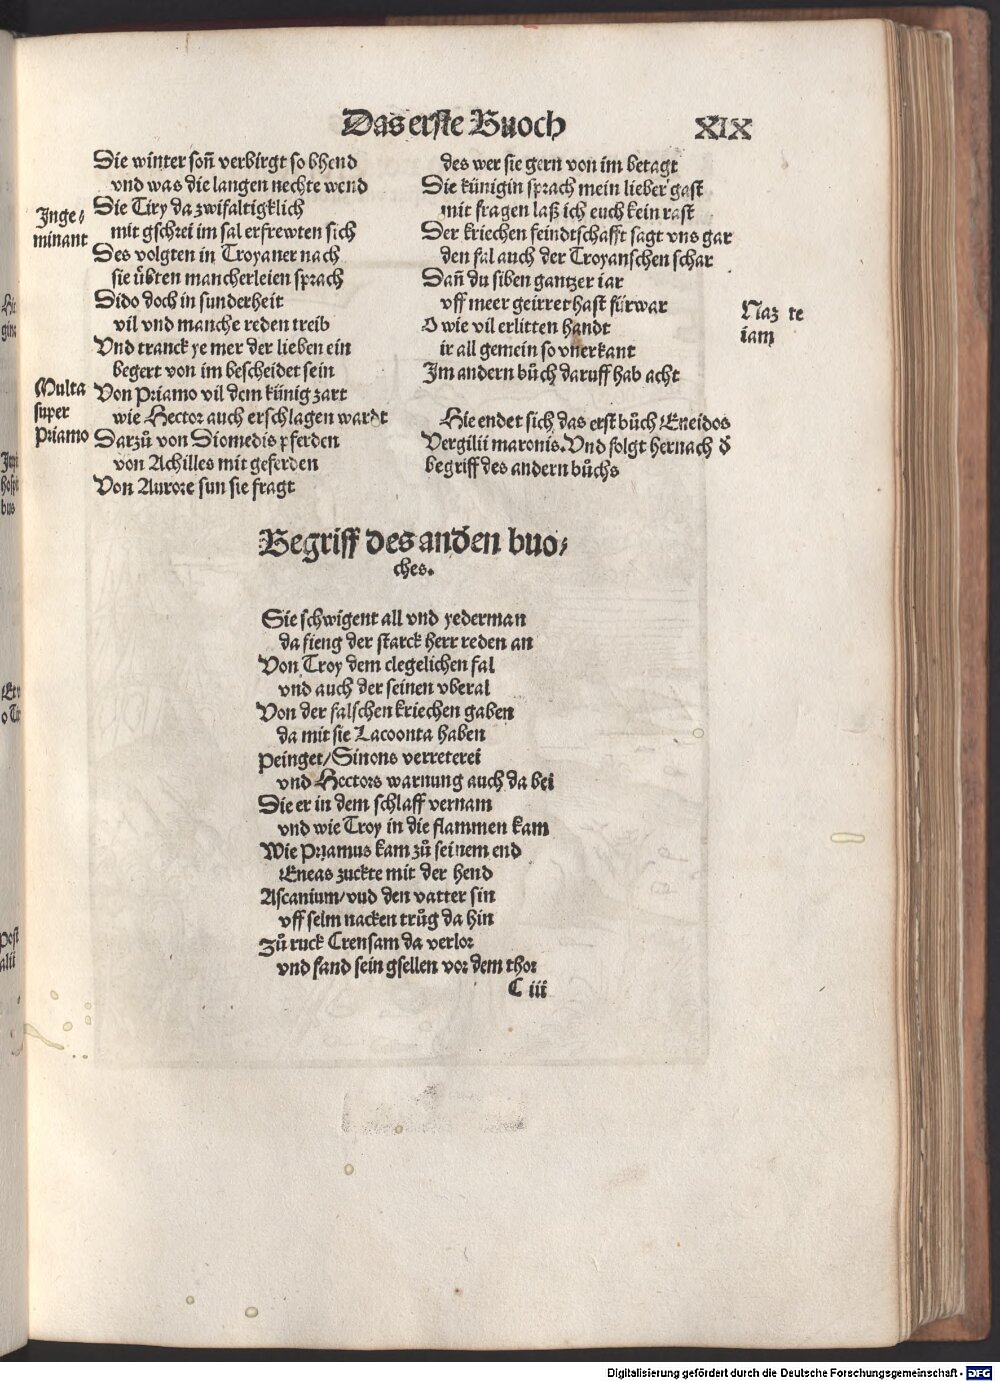 Das erste Buoch
XIX
Die winter soñ verbirgt so bhend
vnd was die langen nechte wend
Die Tiry da zwifaltigklich
mit gschrei im sal erfrewten sich
Des volgten in Troyaner nach
sie uͤbten mancherleien sprach
Dido doch in sunderheit
vil vnd manche reden treib
Vnd tranck ye mer der lieben ein
begert von im bescheidet sein
Von Priamo vil dem künig zart
wie Hector auch erschlagen wardt
Darzuͦ von Diomedis pferden
von Achilles mit geferden
Von Aurore sun sie fragt
Inge⸗
minant
Multa
super
Priamo
des wer sie gern von im betagt
Die künigin sprach mein lieber gast
mit fragen laß ich euch kein rast
Der kriechen feindtschafft sagt vns gar
den fal auch der Troyanschen schar
Dañ du siben gantzer iar
vff meer geirret hast fürwar
O wie vil erlitten handt
ir all gemein so vnerkant
Im andern buͦch daruff hab acht
Naʒ te
iam
Hie endet sich das erst buͦch Eneidos
Vergilii maronis. Vnd folgt hernach d̕
begriff des andern buͦchs
Begriff des and̕en buo⸗
ches.
Sie schwigent all vnd yederman
da fieng der starck herr reden an
Von Troy dem clegelichen fal
vnd auch der seinen vberal
Von der falschen kriechen gaben
da mit sie Lacoonta haben
Peinget/Sinons verreterei
vnd Hectors warnung auch da bei
Die er in dem schlaff vernam
vnd wie Troy in die flammen kam
Wie Priamus kam zuͦ seinem end
Eneas zuckte mit der hend
Ascanium/vnd den vatter sin
vff selm nacken truͦg da hin
Zuͦ ruck Creusam da verlor
vnd fand sein gsellen vor dem thor
C iii
Digitalisierung gefördert durch die Deutsche Forschungsgemeinschaft - DFG